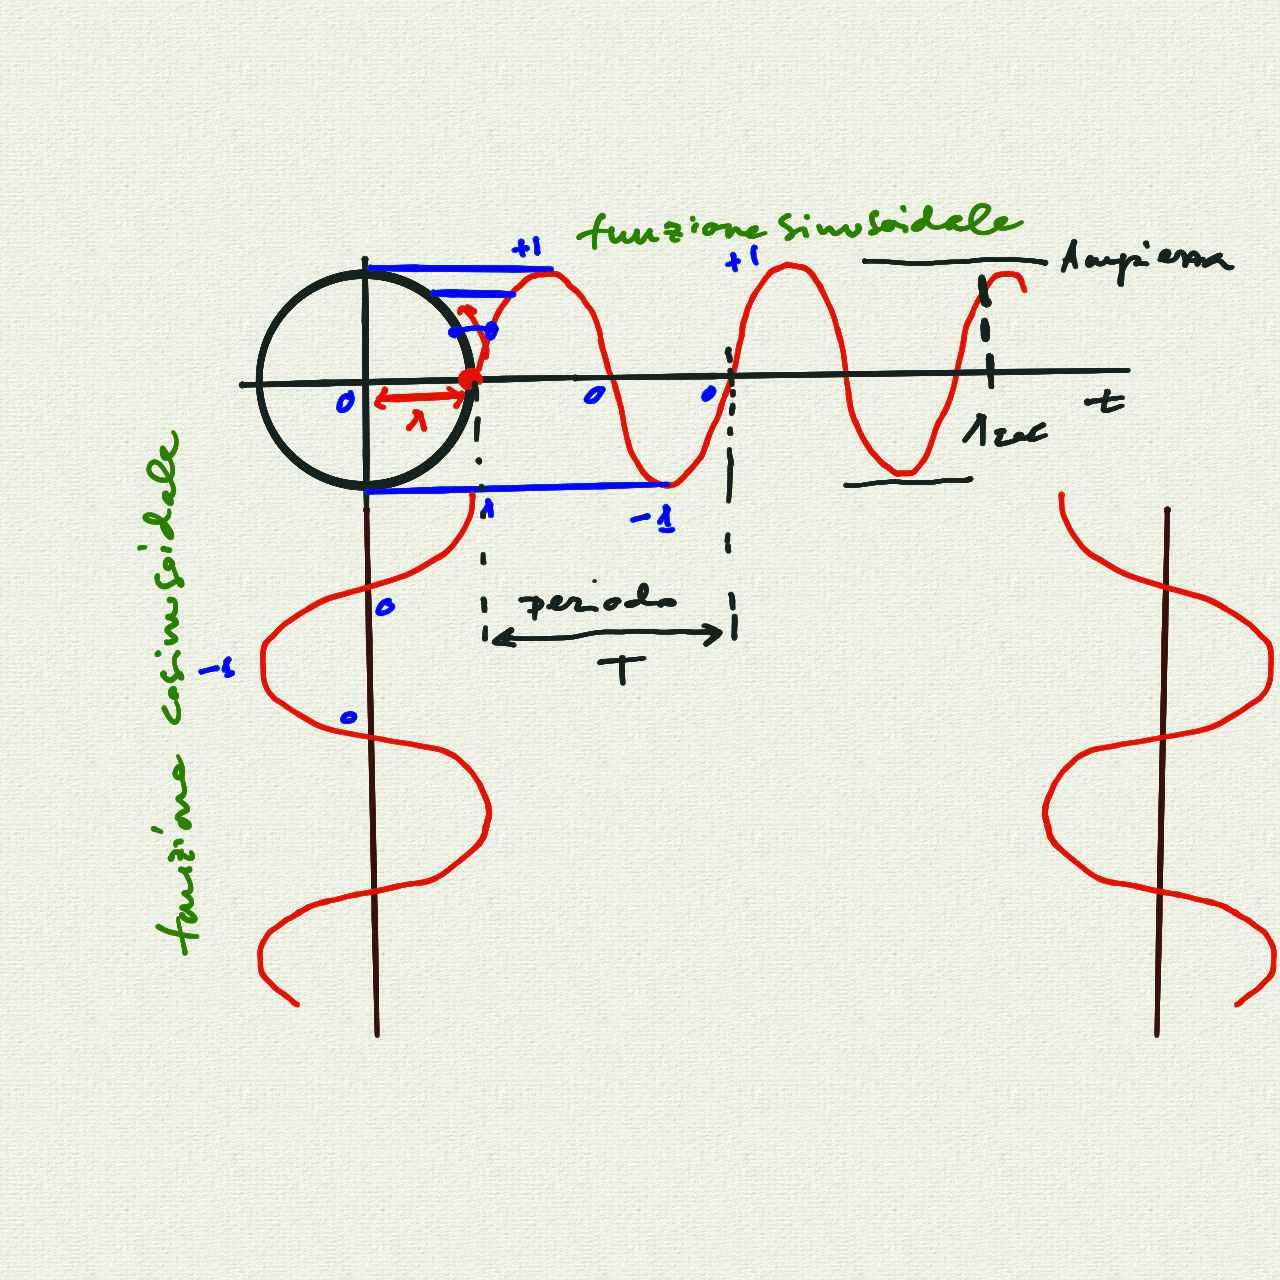 funzione sinusoidale
+1
+1
Ampiezza
0
0
0
t
1
1 sec
1
-1
0
periodo
T
-1
0
funzione cosinusoidale